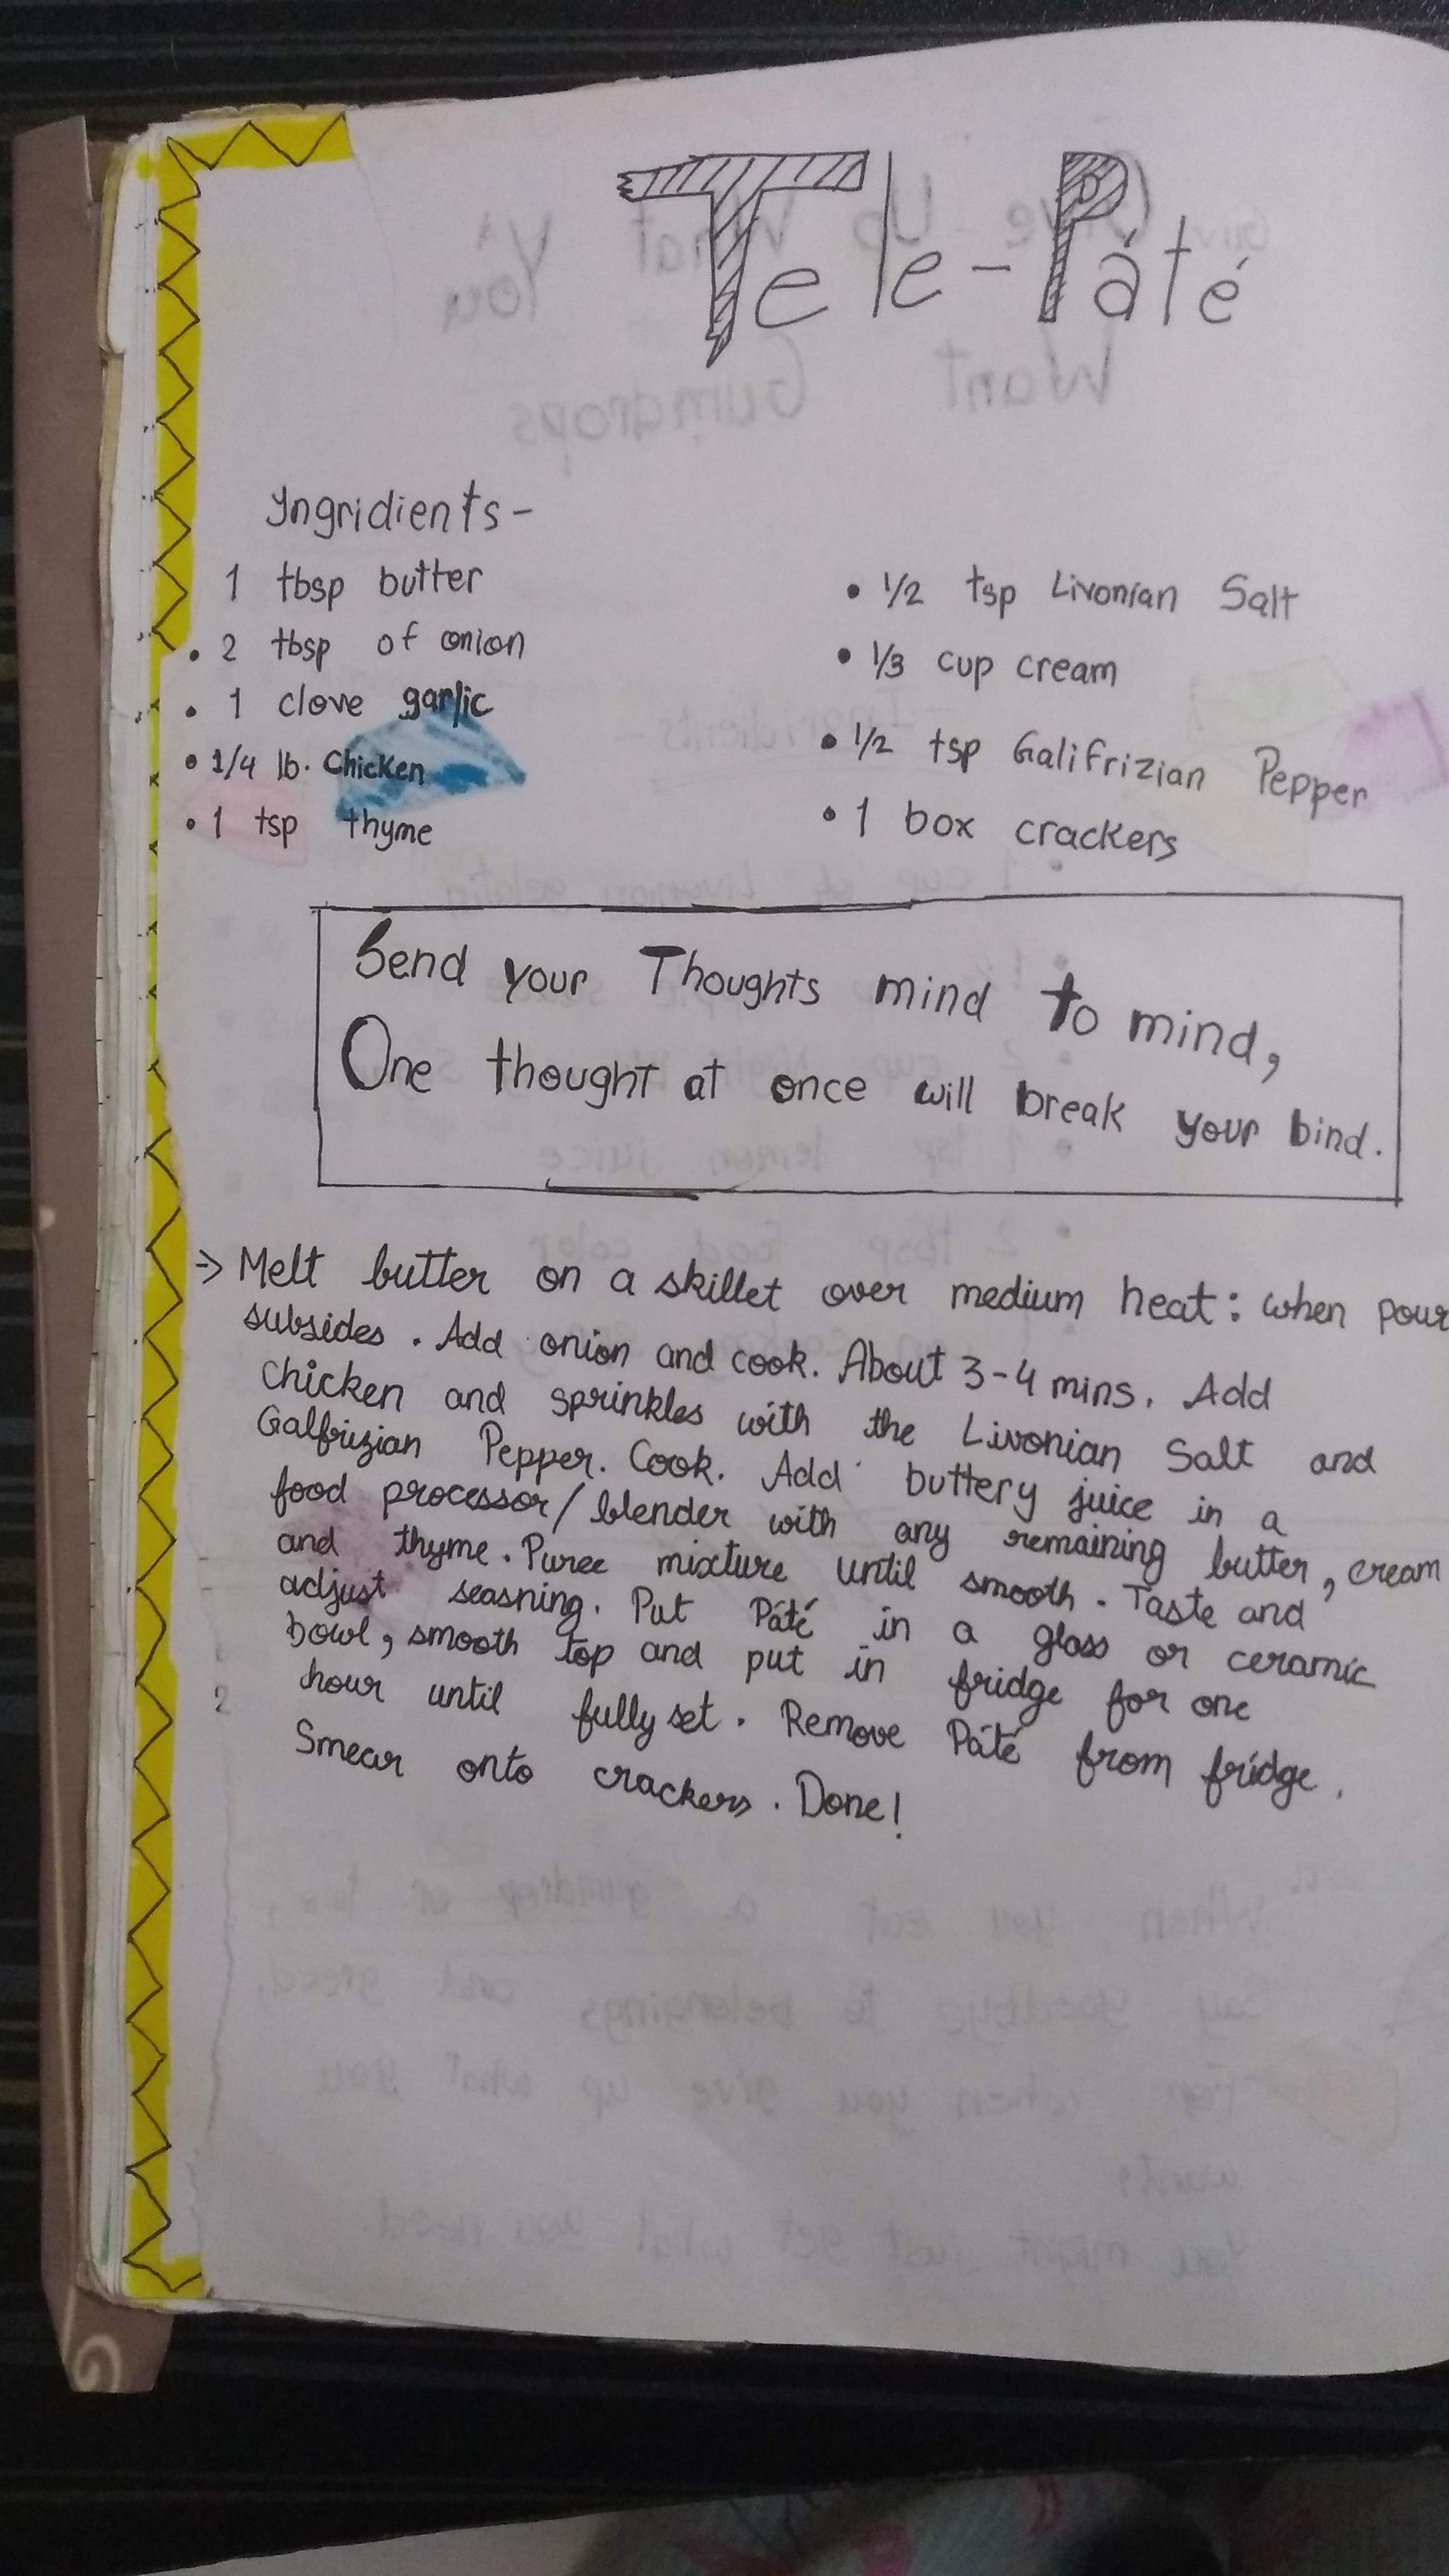 Tele-Páté
Yngridients-
1 tbsp butter
• 2 tbsp of onion
• 1 clove garlic
• 1/4 lb. Chicken
• 1 tsp thyme
• 1/2 tsp Livonian Salt
• 1/3 cup cream
• 1/2 tsp Galifrizian Pepper
• 1 box crackers
Send your Thoughts mind to mind,
One thought at once will break your bind.
→ Melt butter on a skillet over medium heat: when pour
subsides. Add onion and cook. About 3-4 mins. Add
Chicken and sprinkles with the Livonian Salt and
Galfrizian Pepper. Cook. Add buttery juice in a
food processor/blender with any remaining butter, cream
and thyme. Puree mixture until smooth. Taste and
adjust seasning. Put Páté in a glass or ceramic
bowl, smooth top and put in fridge for one
hour until fully set. Remove Páté from fridge.
Smear onto crackers. Done!